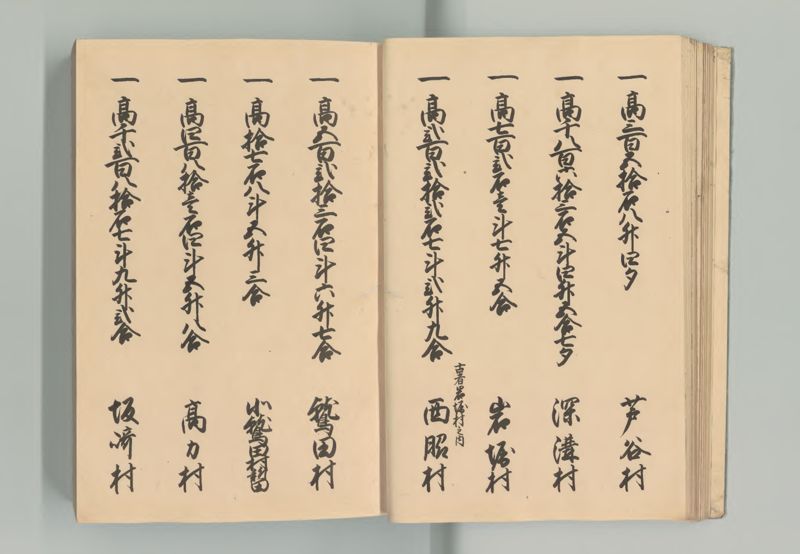 一高三百五拾石八升四夕 芦谷村
一高千八百八拾三石五斗四升五合七夕 深溝村
一高七百弐石壱斗七升五合 岩堀村
古者岩堀村之内
一高弐百弐拾弐石七斗弐升九合 西昭村
一高五百弐拾三石四斗六升七合 鷲田村
一高拾七石八斗五升三合 小鷲田村新田
一高四百八拾壱石四斗五升八合 高力村
一高千弐百八拾石七斗九升弐合 坂崎村